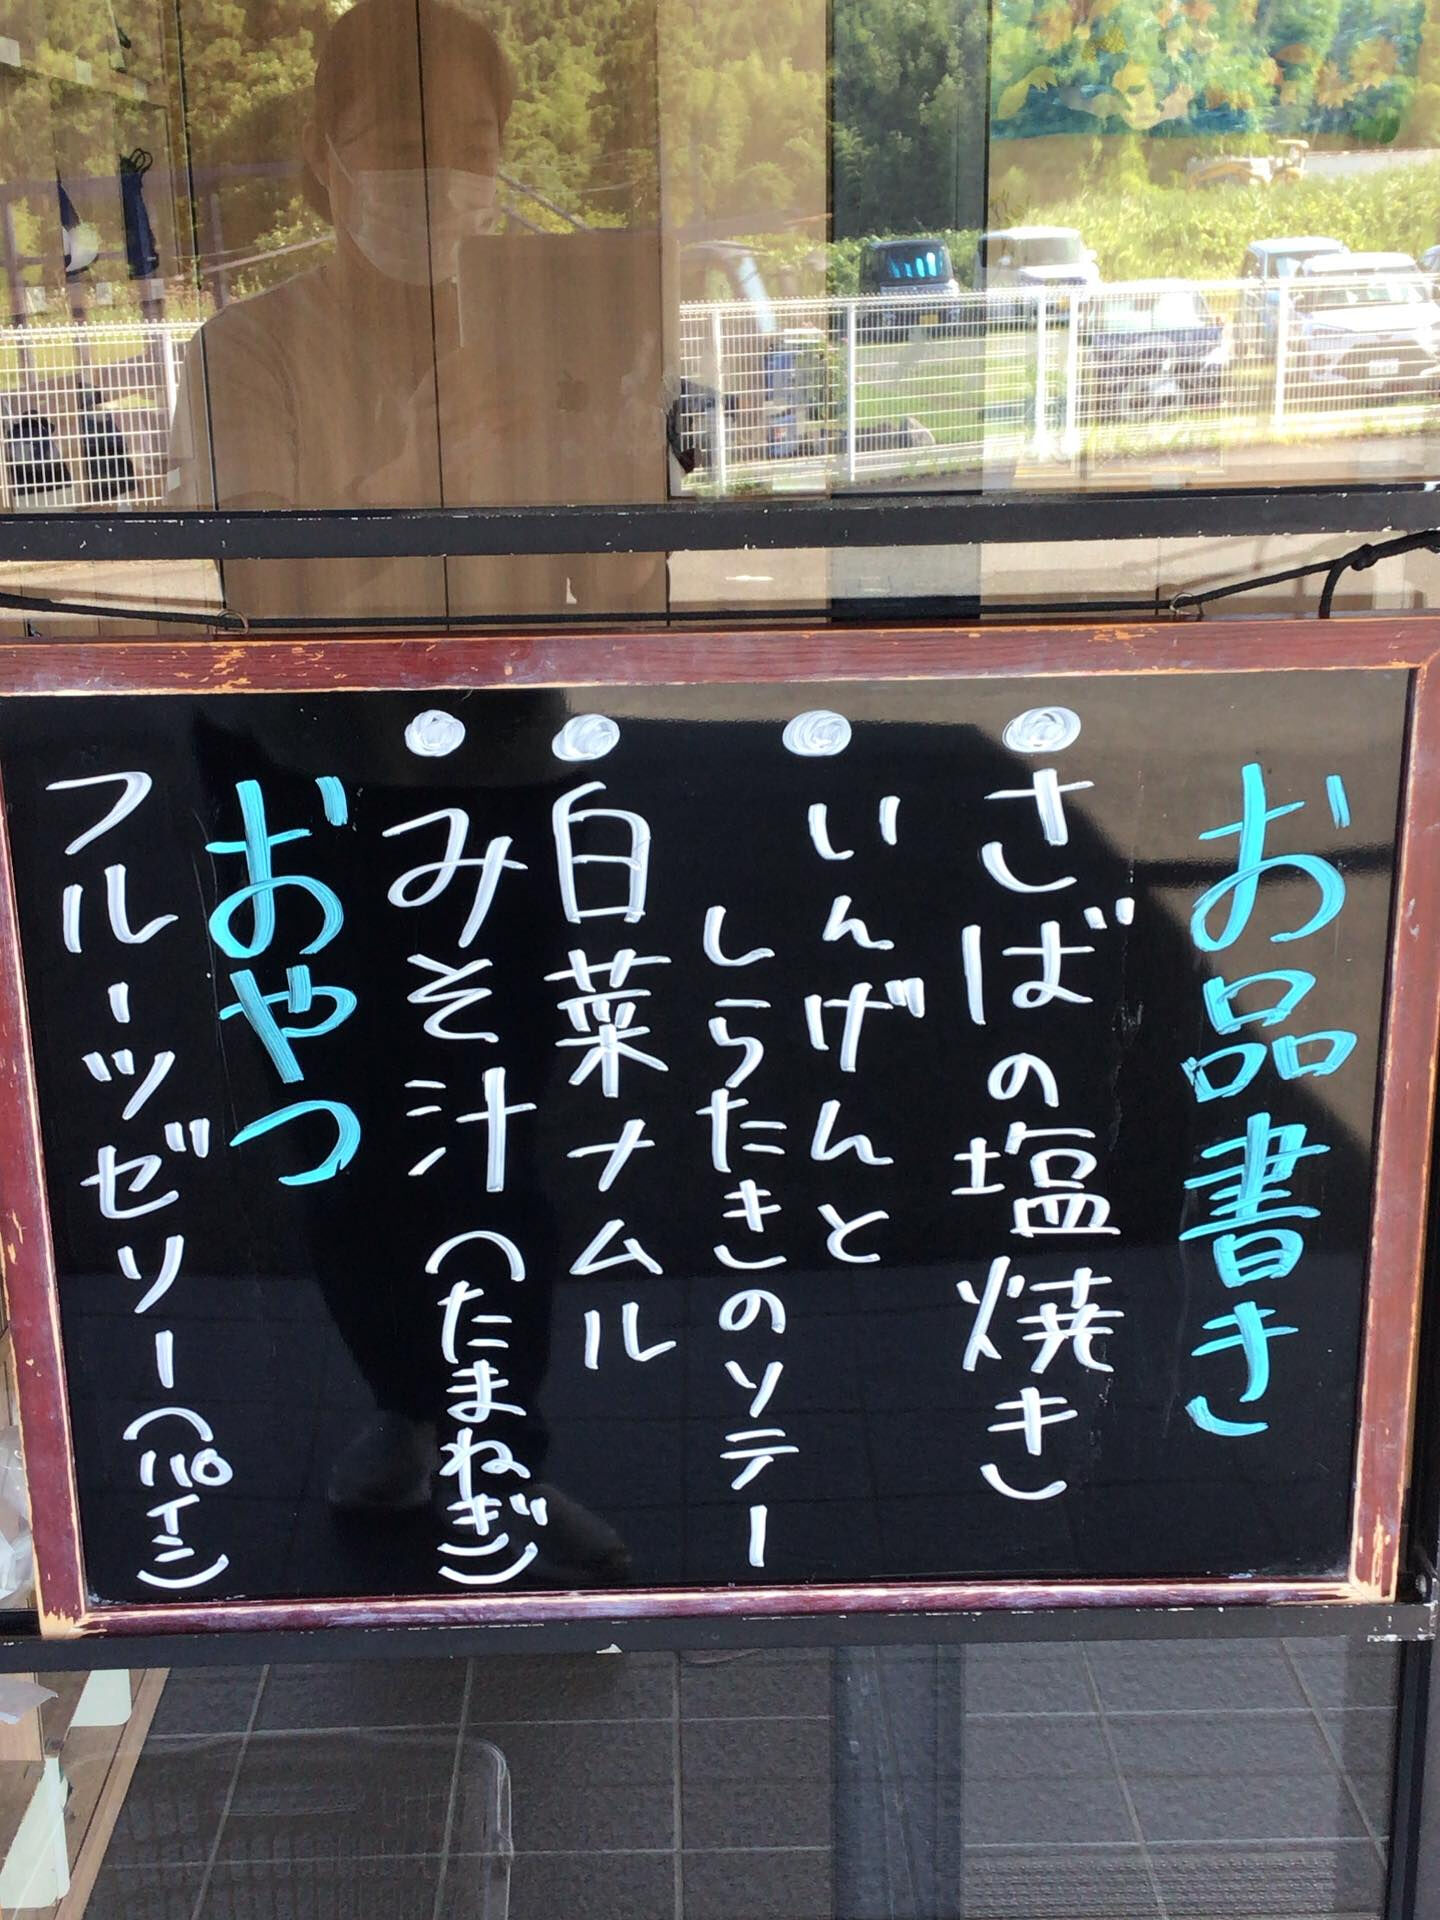 お品書き
さばの塩焼き
いんげんと
しらたきのソテー
白菜ナムル
みそ汁(たまねぎ)
おやつ
フルーツゼリー(パイン)